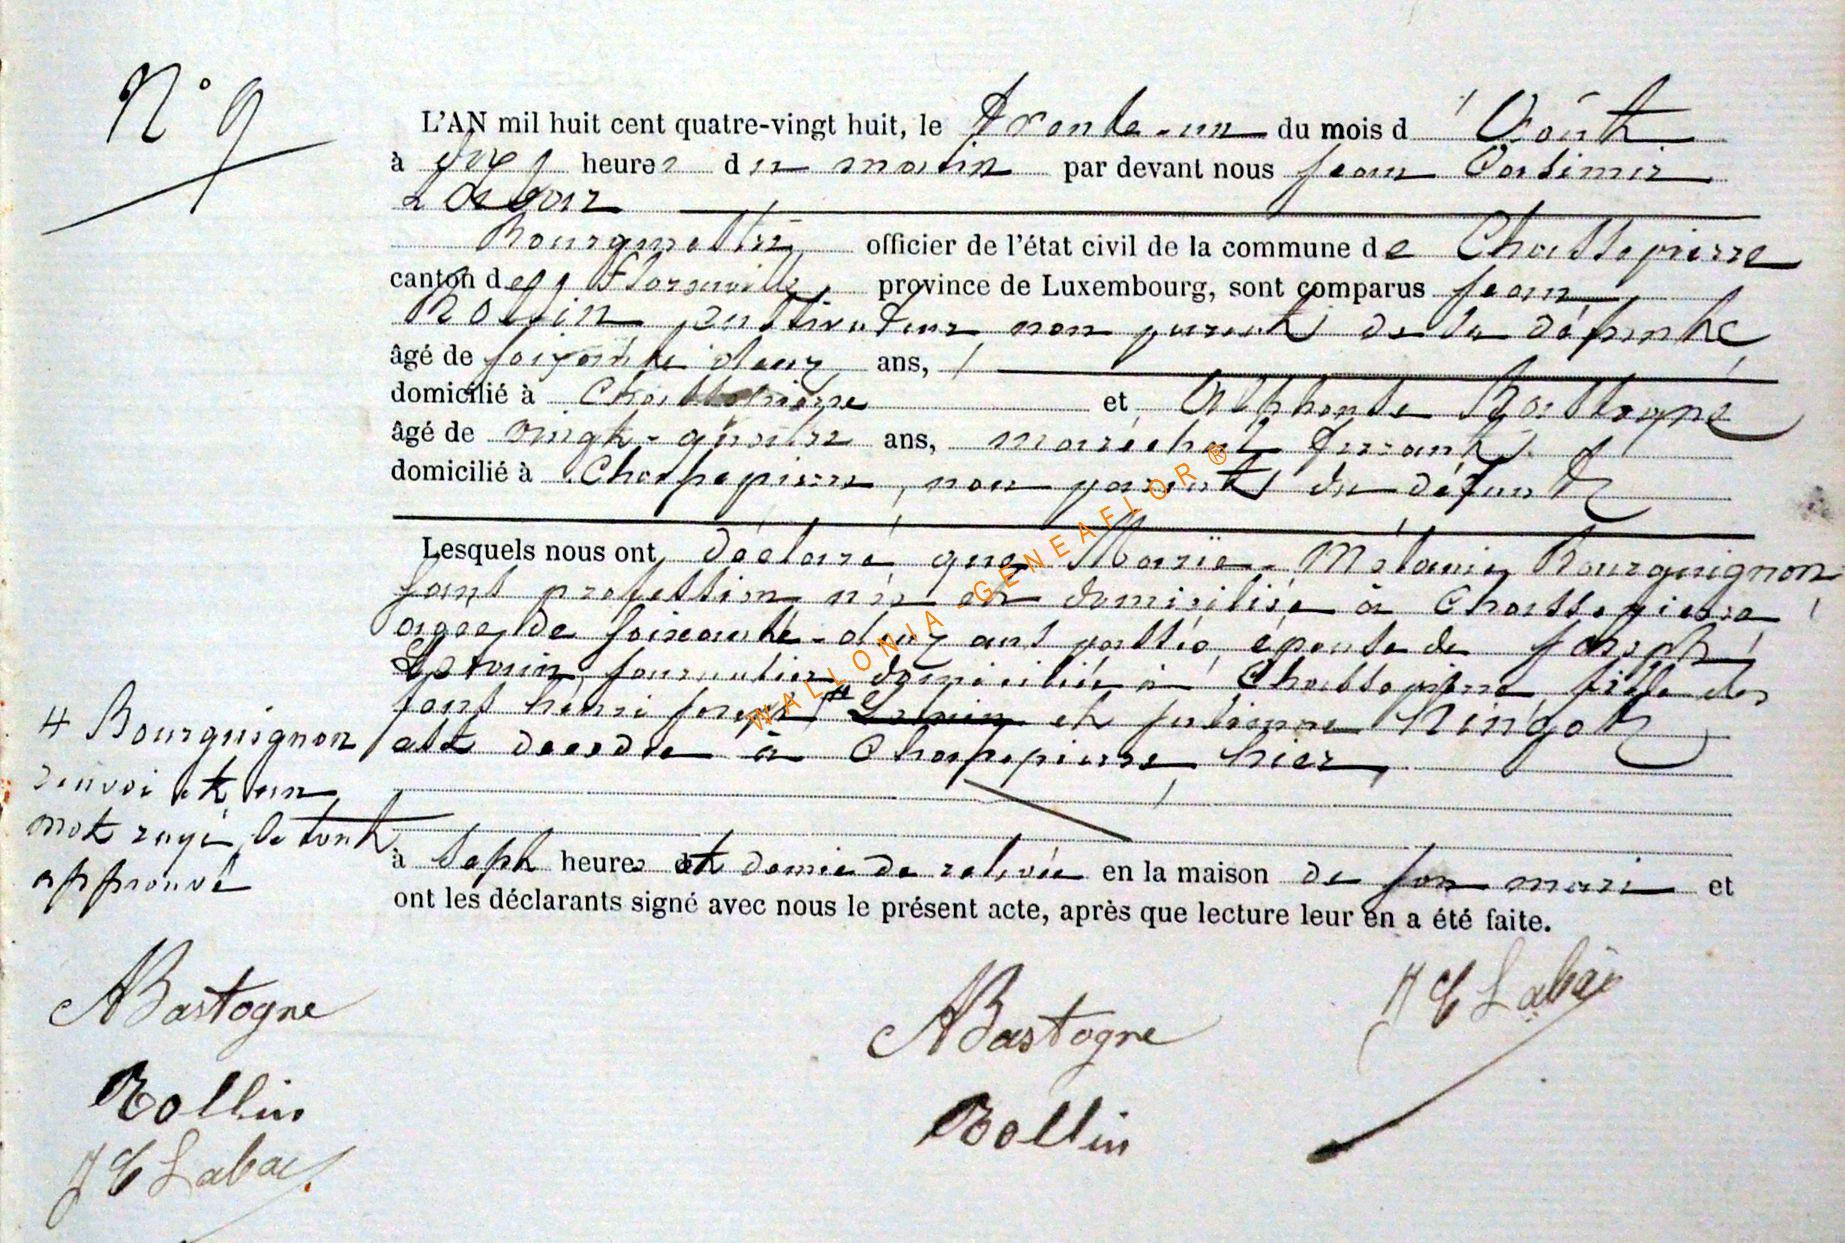 N° 9
L'AN mil huit cent quatre-vingt huit, le trente-un du mois d'Août
à dix heures du matin par devant nous Jean Casimir
Labbaz
Bourgmestre officier de l'état civil de la commune de Chassepierre
canton de Florenville province de Luxembourg, sont comparus Jean
Rollin cultivateur non parent de la défunte
âgé de soixante deux ans,
domicilié à Chassepierre et Alphonse Bastogne
âgé de vingt-quatre ans, maréchal ferrant
domicilié à Chassepierre, non parent du défunt
Lesquels nous ont déclaré que Marie-Mélanie Bourguignon
sans profession née et domiciliée à Chassepierre
agée de soixante-deux ans passés, épouse de Joseph
journalier domicilié à Chassepierre fille des
Henri Joseph # et Julienne Ningot
est décédée à Chassepierre hier
à sept heures et demie de relevée en la maison de son mari et
ont les déclarants signé avec nous le présent acte, après que lecture leur en a été faite.
# Bourguignon
renvoi et un
mot rayé le tout
approuvé
ABastogne
Rollin
J C Labaz
ABastogne
Rollin
J C Labaz
WALLONIA-GENEAFLOR ®